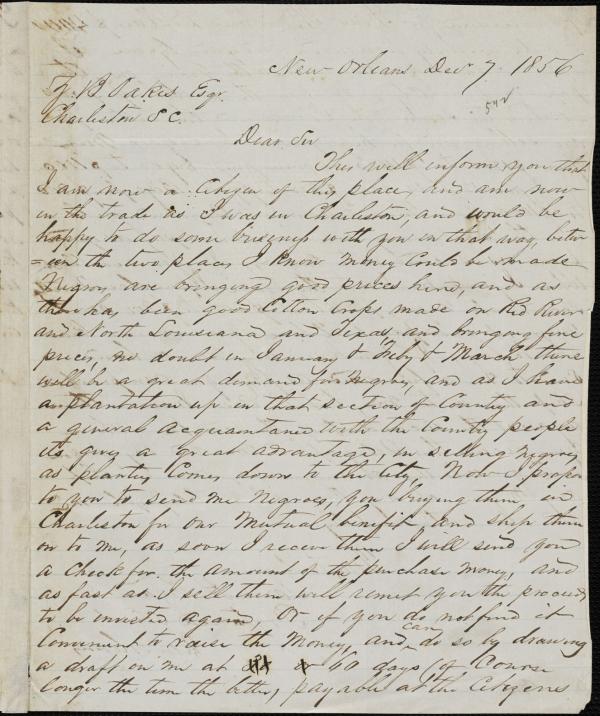 New Orleans Decr 7. 1856
Z. B Oakes Esqr.
Charleston S C.
Dear Sir
This will inform you that
I am now a Citizen of this place, and am now
in the trade as I was in Charleston, and would be
happy to do some business with you in that way, betw
=een the two places, I know money could be made
Negroes are bringing good prices here, and as
there has been good Cotton Crops made on Red River
and North Louisiana and Texas, and bringing fine
prices, no doubt in January & Feby & March there
will be a great demand for Negroes, and as I have
a plantation up in that section of Country and
a general acquaintance with the Country people
its gives a great advantage, in selling negroes
as planters Comes down to the City, Now I propose
to you to send me Negroes, you buying them in
Charleston for our mutual benefit, and ship them
on to me, as soon I receive them I will send you
a check for the amount of the purchase money, and
as fast as I sell them will remit you the proceeds
to be invested again, Or if you do not find it
Convenient to raise the money, and can do so by drawing
a draft on me at or 60 days, of Course
longer the time the better, payable at the Citizens